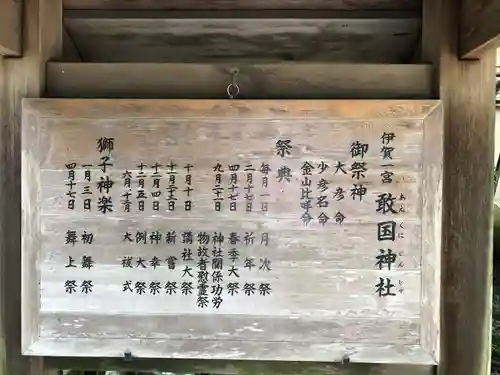 伊賀一宮 敢国神社
あえくにじんじゃ
御祭神
大彦命
少彦名命
金山比咩命
祭典
毎月一日 月次祭
二月十七日 祈年祭
四月十七日 春季大祭
神社関係功労
物故者慰霊祭
十月十日 講社大祭
十一月二十三日 新嘗祭
十二月四日 神幸祭
十二月五日 例大祭
大祓式
獅子神楽
一月三日 初舞祭
四月十七日 舞上祭